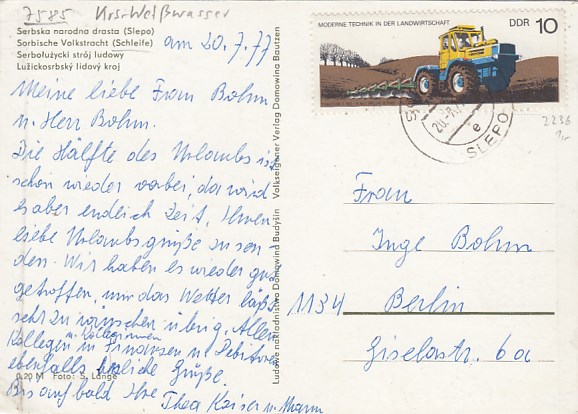 7585 Krs. Weißwasser
Serbska narodna drasta (Slepo)
Sorbische Volkstracht (Schleife)
Serbołużycki strój ludowy
Lužickosrbský lidový kroj
am 20.7.77
Meine liebe Frau Bohm
u. Herr Bohm.
Die Hälfte des Urlaubs ist
schon wieder vorbei, da wird
es aber endlich Zeit, Ihnen
liebe Urlaubsgrüße zu sen
den. Wir haben es wieder gut
getroffen, nur das Wetter läßt
sehr zu wünschen übrig. Allen
Kollegen u. Kolleginnen in Finanzen u. Debitoren
ebenfalls herzliche Grüße.
Bis auf bald Ihre Thea Kaiser u. Mann
0,20 M Foto: S. Lange
Ludowe nakładnistwo Domowina Budyšin Volkseigener Verlag Domowina Bautzen
MODERNE TECHNIK IN DER LANDWIRTSCHAFT DDR 10
SLEPO
e
2236
Frau
Inge Bohm
1134 Berlin
Giselastr. 6a